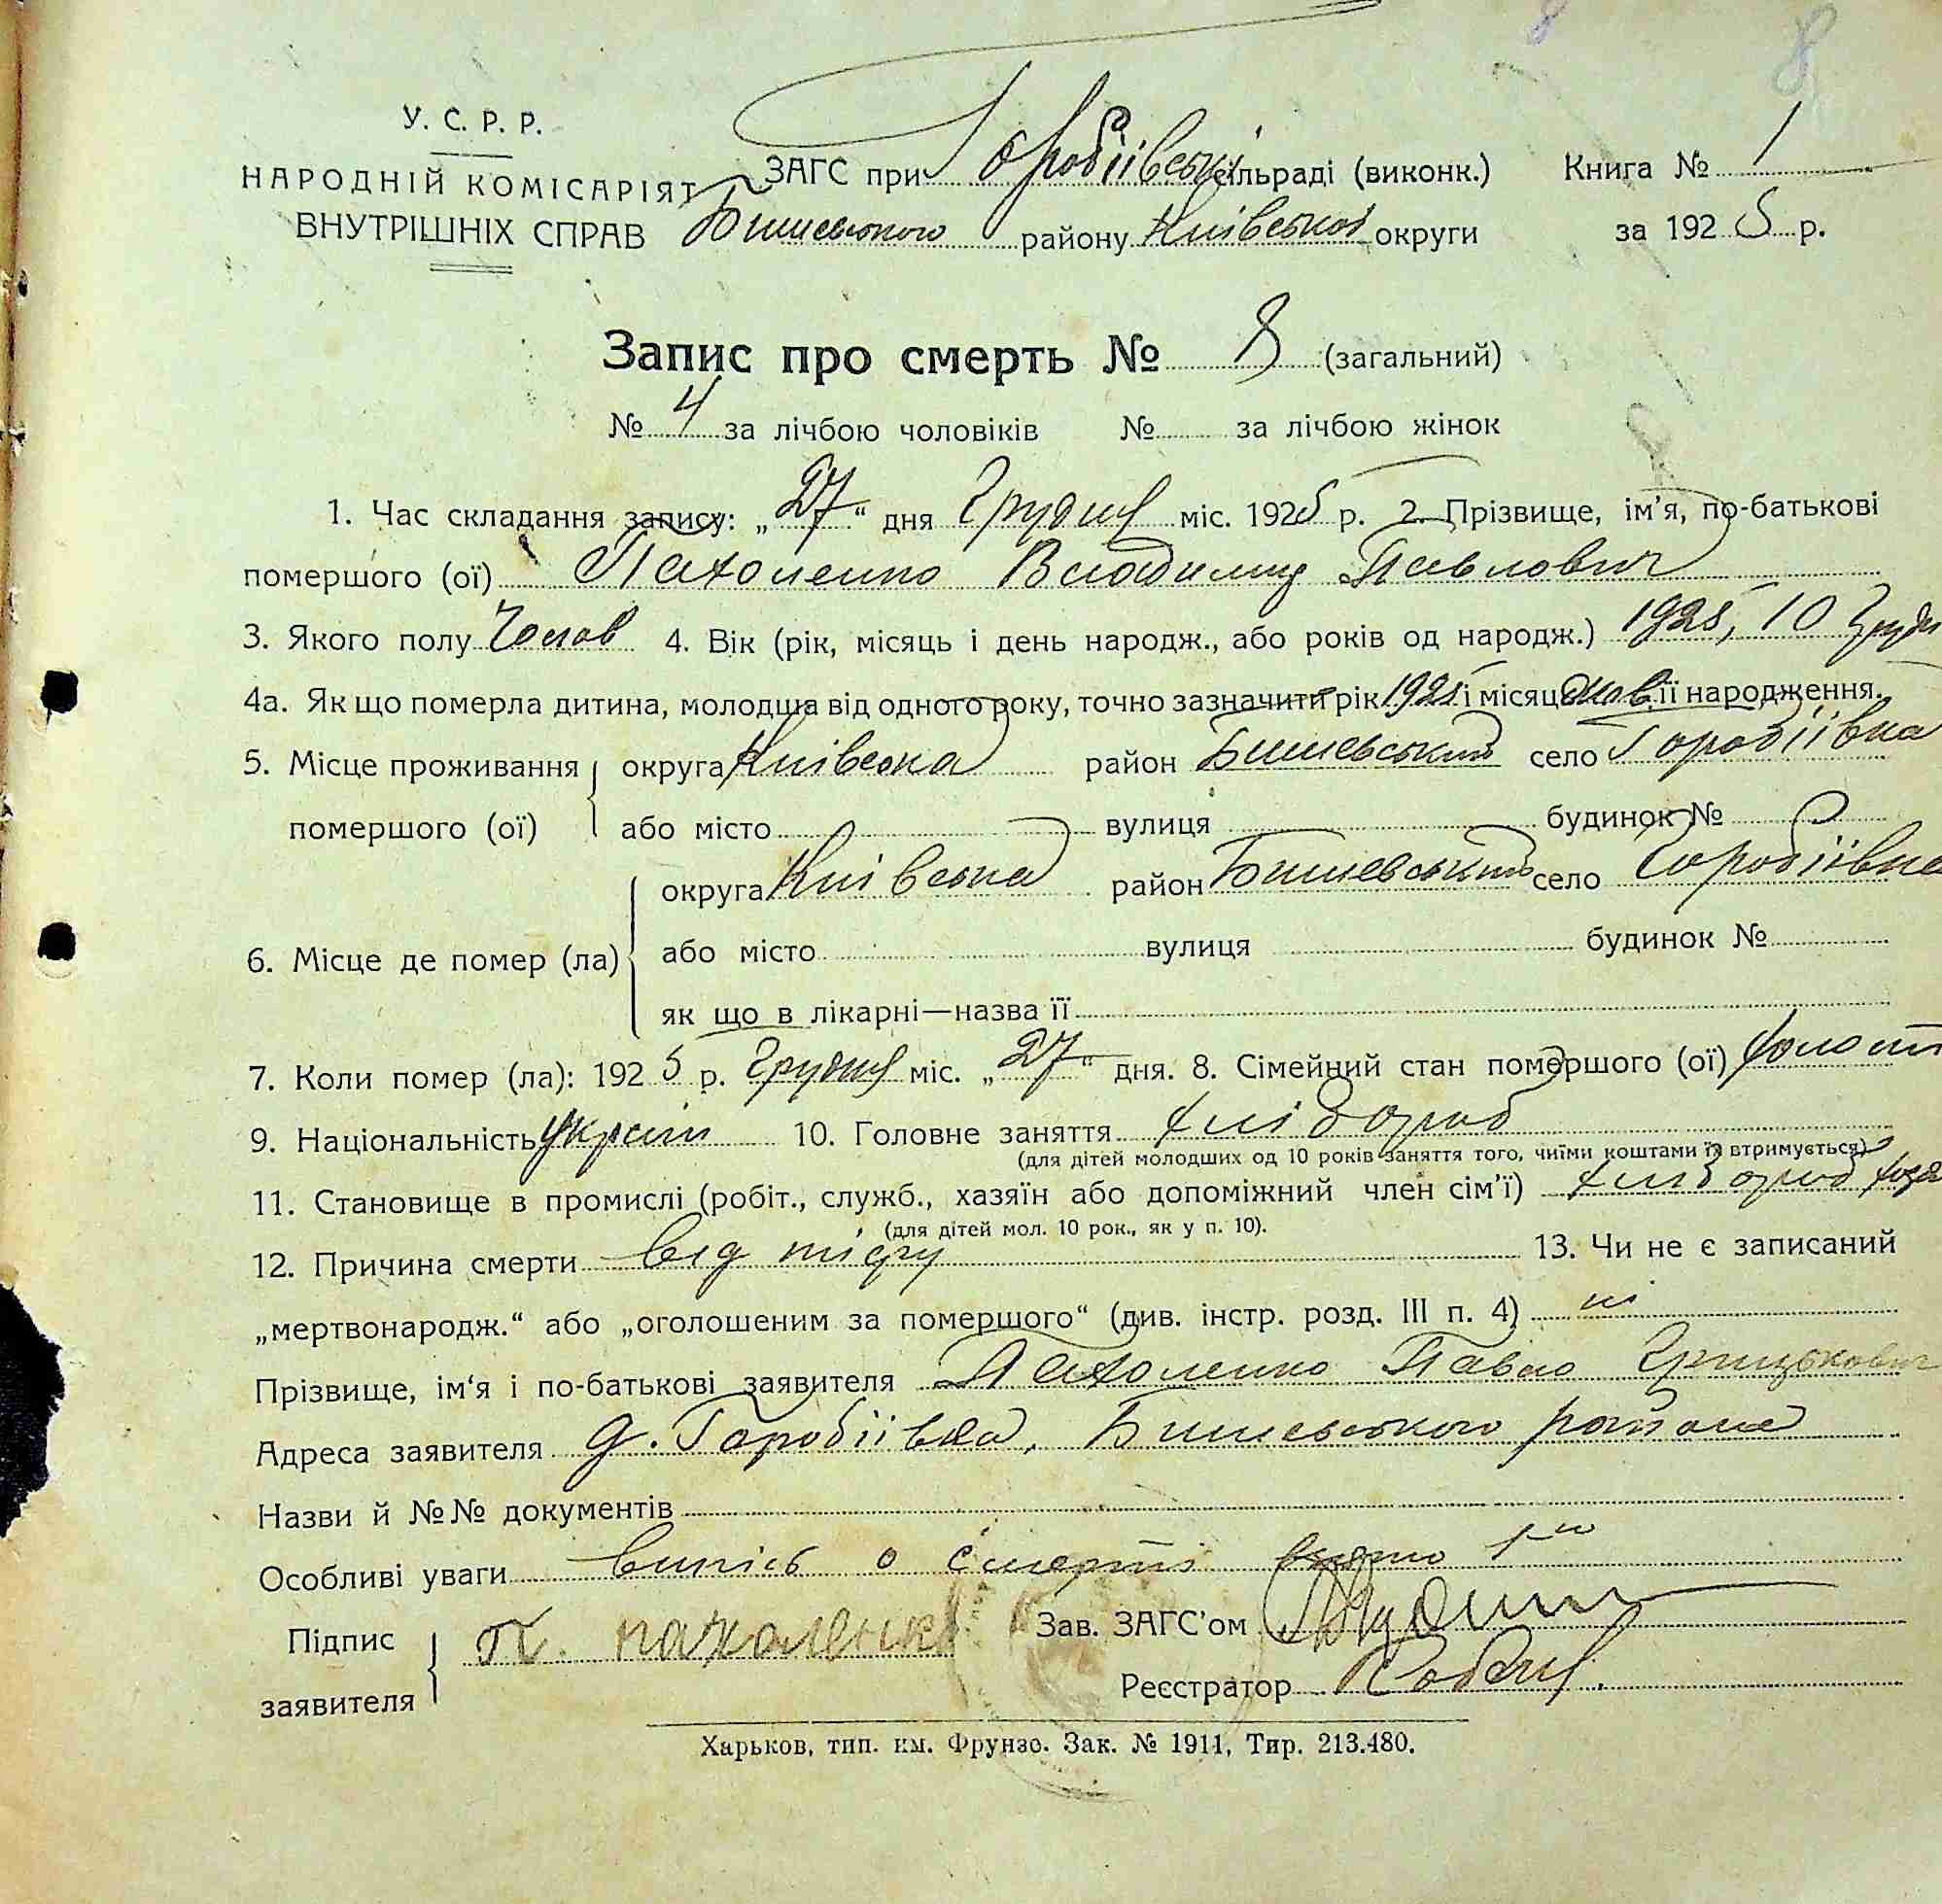 8
У. С. Р. Р.
НАРОДНІЙ КОМІСАРІЯТ
ВНУТРІШНІХ СПРАВ
ЗАГС при Горобіівські сільраді (виконк.) Книга № 1
Бишевського району Київської округи за 1925 р.
Запис про смерть № 8 (загальний)
№ 4 за лічбою чоловіків № за лічбою жінок
1. Час складання запису: „27“ дня Грудня міс. 1925 р. 2. Прізвище, ім'я, по-батькові
помершого (ої) Пахоленко Владимир Павлович
3. Якого полу Чолов 4. Вік (рік, місяць і день народж., або років од народж.) 1925, 10 Грудн
4а. Як що померла дитина, молодша від одного року, точно зазначити рік 1925 і місяць її народження.
5. Місце проживання округа Київська район Бишевський село Горобіівка
помершого (ої) або місто вулиця будинок №
округа Київська район Бишевський село Горобіівка
6. Місце де помер (ла) або місто вулиця будинок №
як що в лікарні—назва її
7. Коли помер (ла): 1925 р. Грудня міс. „27“ дня. 8. Сімейний стан помершого (ої) холост
9. Національність Україн 10. Головне заняття хлібороб
(для дітей молодших од 10 років заняття того, чиїми коштами їх втримується)
11. Становище в промислі (робіт., служб., хазяїн або допоміжний член сім'ї) хлібороб хозя
(для дітей мол. 10 рок., як у п. 10).
12. Причина смерти від тіфу 13. Чи не є записаний
„мертвонародж.“ або „оголошеним за помершого“ (див. інстр. розд. III п. 4) ні
Прізвище, ім'я і по-батькові заявителя Пахоленко Павло Грицькович
Адреса заявителя д. Горобіівка, Бишевського района
Назви й №№ документів
Особливі уваги випісь о смерті
Підпис заявителя П. пахоленко Зав. ЗАГС'ом
Реєстратор
Харьков, тип. им. Фрунзе. Зак. № 1911, Тир. 213.480.